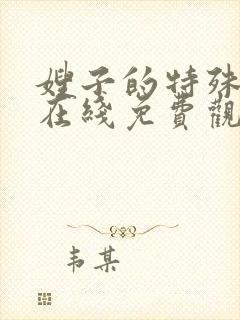 嫂子的特殊
在綫免費觀
韦某